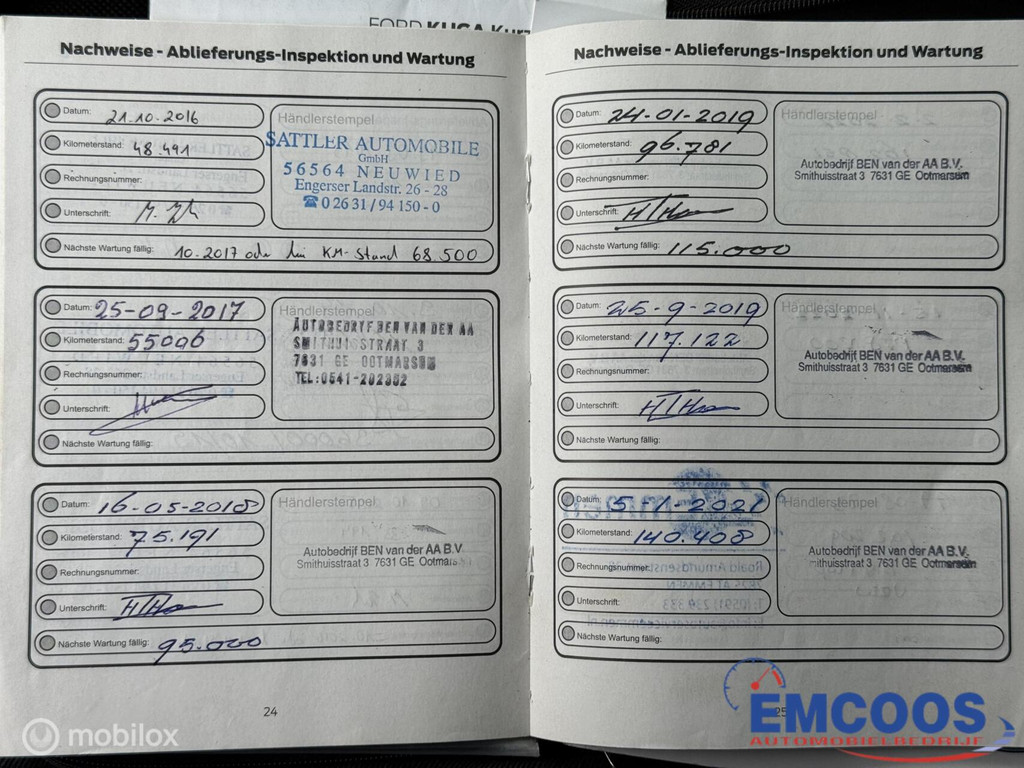 FORD KUGA Kurz
Nachweise - Ablieferungs-Inspektion und Wartung
Datum: 21.10.2016
Kilometerstand: 48.491
Rechnungsnummer:
Unterschrift:
Nächste Wartung fällig: 10.2017 oder bei KM-Stand 68.500
Händlerstempel
SATTLER AUTOMOBILE
GmbH
56564 NEUWIED
Engerser Landstr. 26 - 28
☎ 0 26 31 / 94 150 - 0
Datum: 25-09-2017
Kilometerstand: 55006
Rechnungsnummer:
Unterschrift:
Nächste Wartung fällig:
Händlerstempel
AUTOBEDRYF BEN VAN DER AA
SMITHUISSTRAAT 3
7631 GE OOTMARSUM
TEL:0541-292302
Datum: 16-05-2018
Kilometerstand: 75.191
Rechnungsnummer:
Unterschrift:
Nächste Wartung fällig: 95.000
Händlerstempel
Autobedrijf BEN van der AA B.V.
Smithuisstraat 3 7631 GE Ootmarsum
24
Nachweise - Ablieferungs-Inspektion und Wartung
Datum: 24-01-2019
Kilometerstand: 96.781
Rechnungsnummer:
Unterschrift:
Nächste Wartung fällig: 115.000
Händlerstempel
Autobedrijf BEN van der AA B.V.
Smithuisstraat 3 7631 GE Ootmarsum
Datum: 25-9-2019
Kilometerstand: 117.122
Rechnungsnummer:
Unterschrift:
Nächste Wartung fällig:
Händlerstempel
Autobedrijf BEN van der AA B.V.
Smithuisstraat 3 7631 GE Ootmarsum
Datum: 5-1-2021
Kilometerstand: 140.408
Rechnungsnummer:
Unterschrift:
Nächste Wartung fällig:
Händlerstempel
Autobedrijf BEN van der AA B.V.
Smithuisstraat 3 7631 GE Ootmarsum
25
EMCOOS
AUTOMOBIELBEDRIJF
mobilox